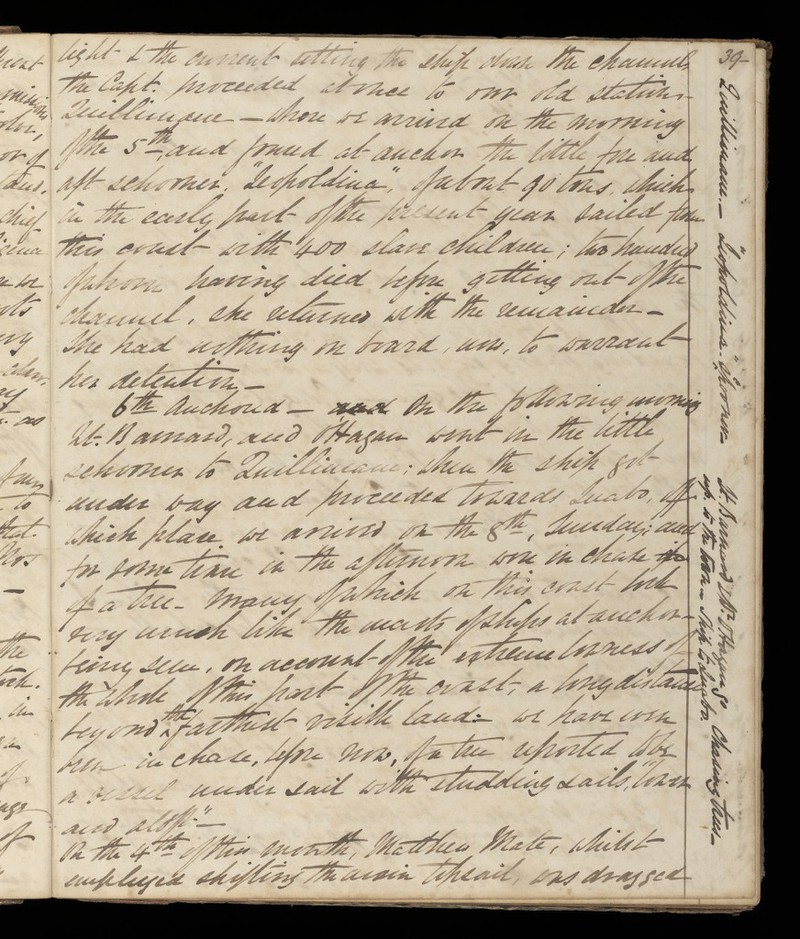 light & the current setting the ship down the channel,
the Capt. proceeded at once to our old station
Quillimane — where we arrived on the morning
of the 5th, and found at anchor the little fore and
aft schooner, "Leopoldina", of about 90 tons, which
in the early part of the present year sailed from
this coast with 400 slave children; two hundred
of whom having died before getting out of the
channel, she returned with the remainder —
She had nothing on board, now, to warrant
her detention —
6th Anchored — On the following morning
Lt. Barnard, and O'Hagan went in the little
schooner to Quillimane; when the ship got
under way and proceeded towards Luabo, off
which place we arrived on the 8th, Sunday; and
for some time in the afternoon were in chase
of a tree — many of which on this coast look
very much like the masts of ships at anchor —
being seen, on account of the extreme lowness of
the whole of this part of the coast, a long distance
beyond the farthest visible land — we have even
been in chase, before now, of a tree reported to be
a vessel under sail with "studding sails, lower
and aloft" —
On the 4th of this month, Matthew Mate, whilst
employed shifting the main topsail, was dragged
39
Quillimane. — "Leopoldina" Schooner — Lt. Barnard & Mr. O'Hagan go
up to the town — Ship to Luabo. Chasing trees —